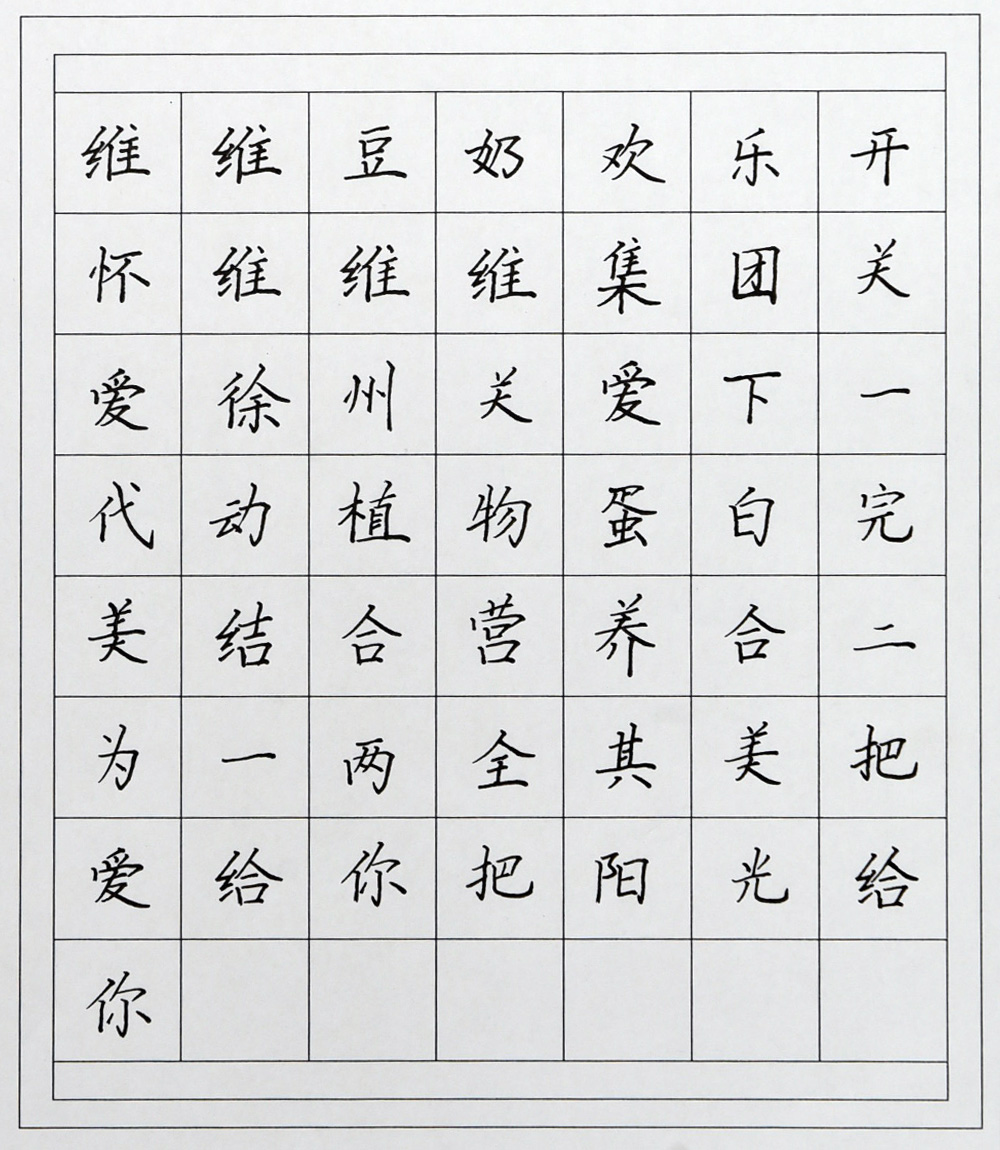 维维豆奶欢乐开
怀维维维集团关
爱徐州关爱下一
代动植物蛋白完
美结合营养合二
为一两全其美把
爱给你把阳光给
你